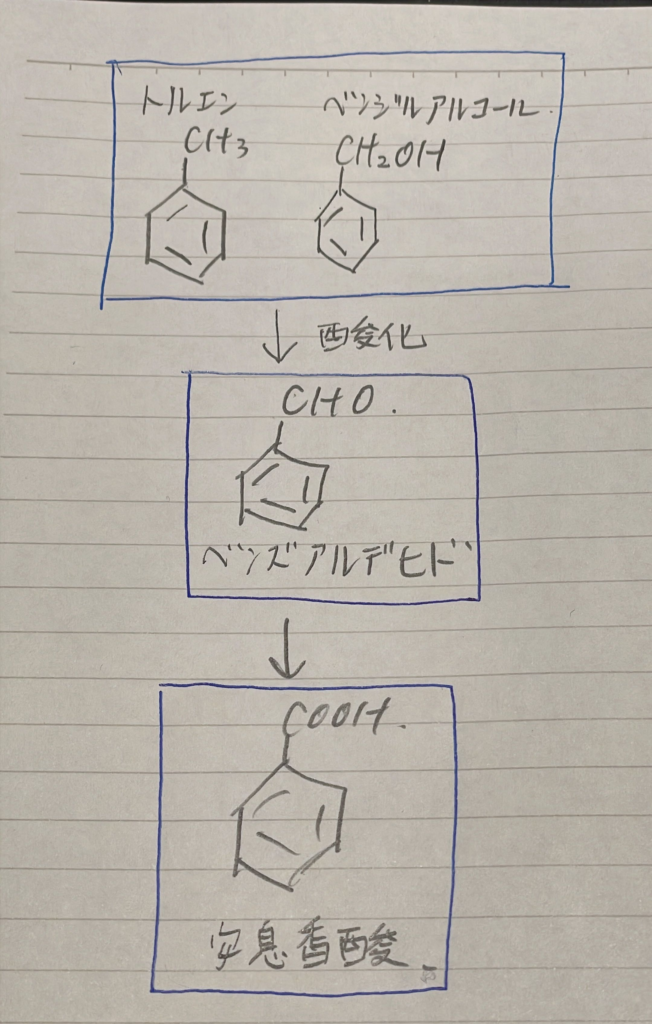 トルエン ベンジルアルコール
CH₃ CH₂OH
↓ 酸化
CHO.
ベンズアルデヒド
↓
COOH.
安息香酸